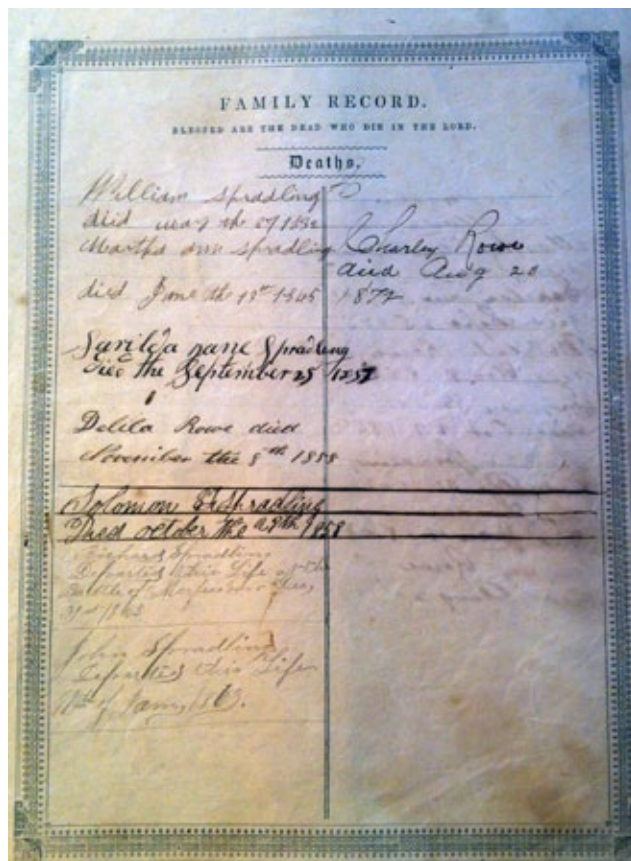 FAMILY RECORD.
BLESSED ARE THE DEAD WHO DIE IN THE LORD.
Deaths.
William Spradling
died may th 27
Martha ann Spradling
died June th 19th 1845
Surilda Jane Spradling
Died the September 25 1857
Delila Rowe died
November the 8th 1858
Solomon Spradling
Died october the 1858
Richard Spradling
Departed this Life at the
Battle of
John Spradling
Departed this Life
of Jany 1863.
Charley Rowe
died Aug 20